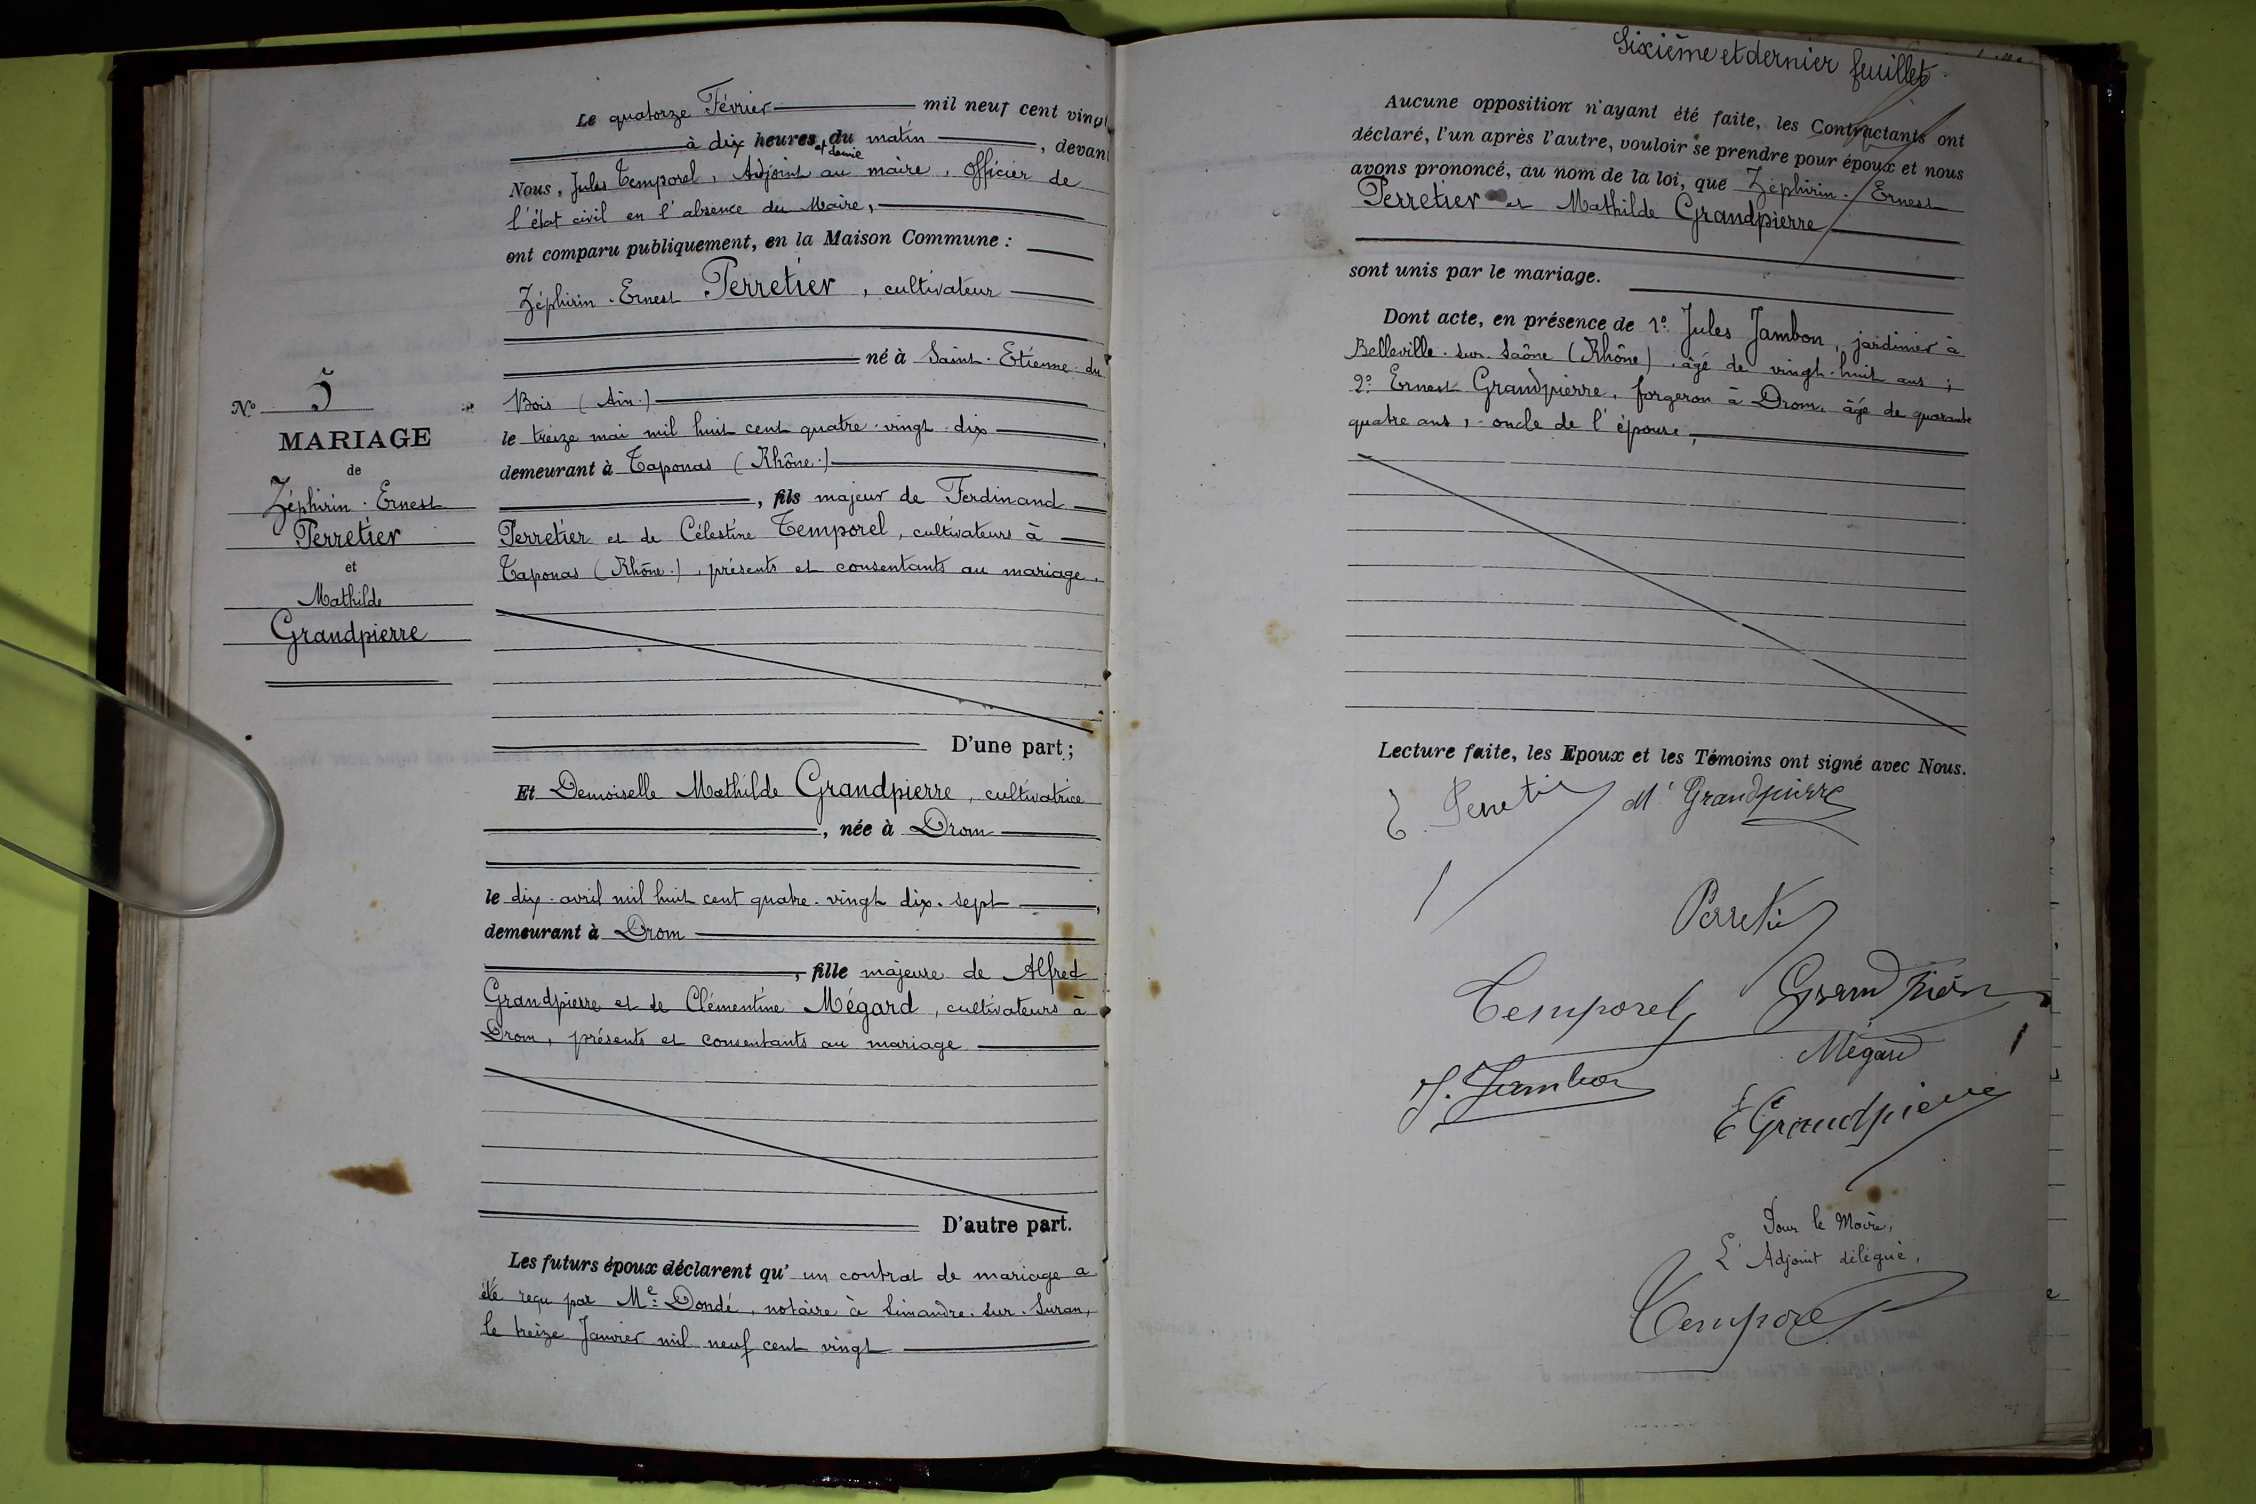 Le quatorze Février mil neuf cent vingt
à dix heures et demie du matin, devant
Nous, Jules Temporel, Adjoint au maire, Officier de
l'état civil en l'absence du Maire,
ont comparu publiquement, en la Maison Commune :
Zéphirin. Ernest Perretier, cultivateur
né à Saint. Etienne. du
Bois (Ain.)
le treize mai mil huit cent quatre. vingt. dix,
demeurant à Taponas (Rhône.)
, fils majeur de Ferdinand
Perretier et de Célestine Temporel, cultivateurs à
Taponas (Rhône.), présents et consentants au mariage.
D'une part ;
Nº 5
MARIAGE
de
Zéphirin. Ernest
Perretier
et
Mathilde
Grandpierre
Et Demoiselle Mathilde Grandpierre, cultivatrice
, née à Drom
le dix. avril mil huit cent quatre. vingt dix. sept,
demeurant à Drom
, fille majeure de Alfred
Grandpierre et de Clémentine Mégard, cultivateurs à
Drom, présents et consentants au mariage
D'autre part.
Les futurs époux déclarent qu' un contrat de mariage a
été reçu par Me. Dondé, notaire à Simandre. sur. Suran,
le treize Janvier mil neuf cent vingt
Sixième et dernier feuillet.
Aucune opposition n'ayant été faite, les Contractants ont
déclaré, l'un après l'autre, vouloir se prendre pour époux et nous
avons prononcé, au nom de la loi, que Zéphirin. Ernest
Perretier et Mathilde Grandpierre
sont unis par le mariage.
Dont acte, en présence de 1º. Jules Jambon, jardinier à
Belleville. sur. Saône (Rhône), âgé de vingt. huit ans ;
2º. Ernest Grandpierre, forgeron à Drom, âgé de quarante
quatre ans, oncle de l'épouse,
Lecture faite, les Epoux et les Témoins ont signé avec Nous.
E. Perretier M. Grandpierre
Perretier
Temporel Grandpierre
Mégard
J. Jambon
E Grandpierre
Pour le Maire,
L'Adjoint délégué,
Temporel